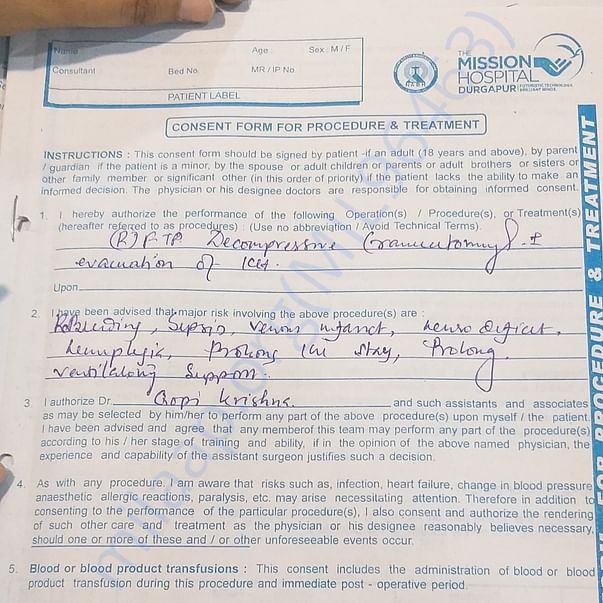 Name Age Sex : M / F
Consultant Bed No. MR / IP No.
PATIENT LABEL
NABH
THE MISSION HOSPITAL DURGAPUR
FUTURISTIC TECHNOLOGY, BRILLIANT MINDS.
CONSENT FORM FOR PROCEDURE & TREATMENT
INSTRUCTIONS : This consent form should be signed by patient -if an adult (18 years and above), by parent
/ guardian if the patient is a minor, by the spouse or adult children or parents or adult brothers or sisters or
other family member or significant other (in this order of priority) if the patient lacks the ability to make an
informed decision. The physician or his designee doctors are responsible for obtaining informed consent.
1. I hereby authorize the performance of the following Operation(s) / Procedure(s), or Treatment(s)
(hereafter referred to as procedures) : (Use no abbreviation / Avoid Technical Terms).
(R) FTP Decompressive
evacuation of
Upon
2. I have been advised that major risk involving the above procedure(s) are :
Sepsis, venous infarct, neuro deficit,
hemiplegia, Prolong ICU stay, Prolong
Support.
3. I authorize Dr. Gopi Krishna and such assistants and associates
as may be selected by him/her to perform any part of the above procedure(s) upon myself / the patient.
I have been advised and agree that any memberof this team may perform any part of the procedure(s)
according to his / her stage of training and ability, if in the opinion of the above named physician, the
experience and capability of the assistant surgeon justifies such a decision.
4. As with any procedure. I am aware that risks such as, infection, heart failure, change in blood pressure
anaesthetic allergic reactions, paralysis, etc. may arise necessitating attention. Therefore in addition to
consenting to the performance of the particular procedure(s), I also consent and authorize the rendering
of such other care and treatment as the physician or his designee reasonably believes necessary,
should one or more of these and / or other unforeseeable events occur.
5. Blood or blood product transfusions : This consent includes the administration of blood or blood
product transfusion during this procedure and immediate post - operative period.
FOR PROCEDURE & TREATMENT